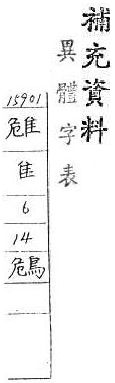 補充資料
異體字表
15901
隹
6
14